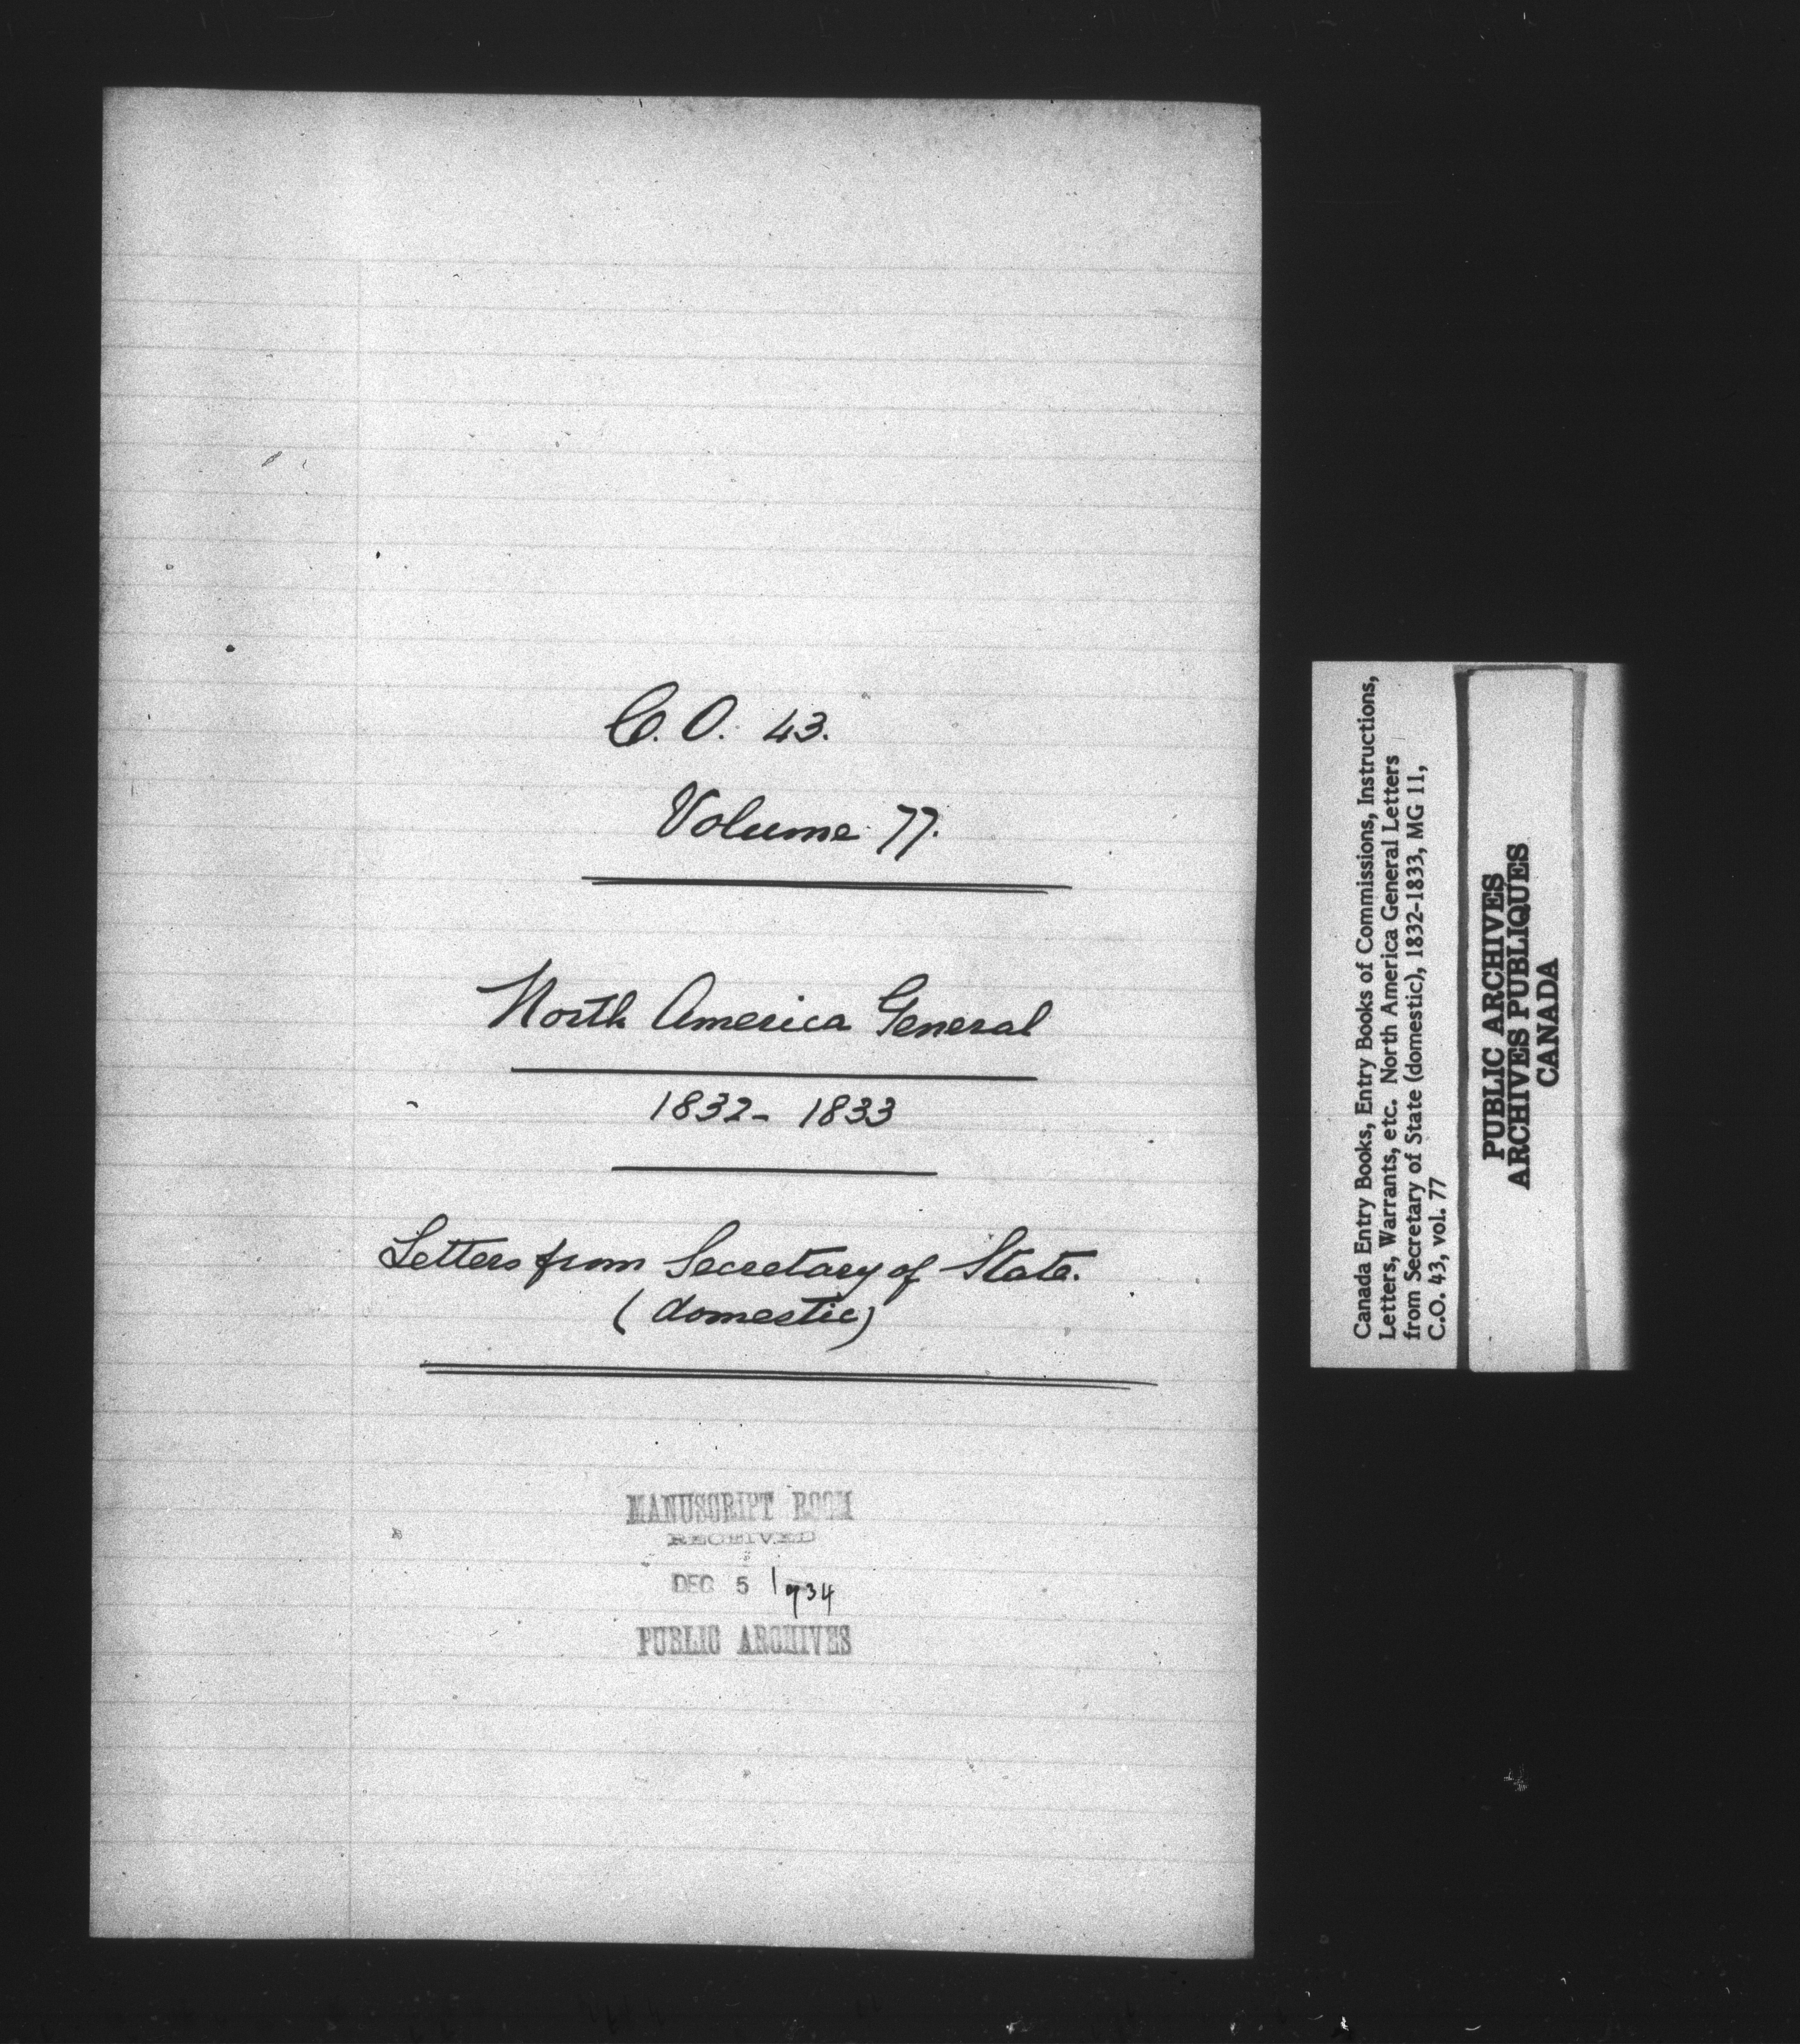 C.O. 43.
Volume 77.
North America General
1832- 1833
Letters from Secretary of State.
(domestic)
MANUSCRIPT ROOM
RECEIVED
DEC 5 1934
PUBLIC ARCHIVES
Canada Entry Books, Entry Books of Commissions, Instructions,
Letters, Warrants, etc. North America General Letters
from Secretary of State (domestic), 1832-1833, MG 11,
C.O. 43, vol. 77
PUBLIC ARCHIVES
ARCHIVES PUBLIQUES
CANADA